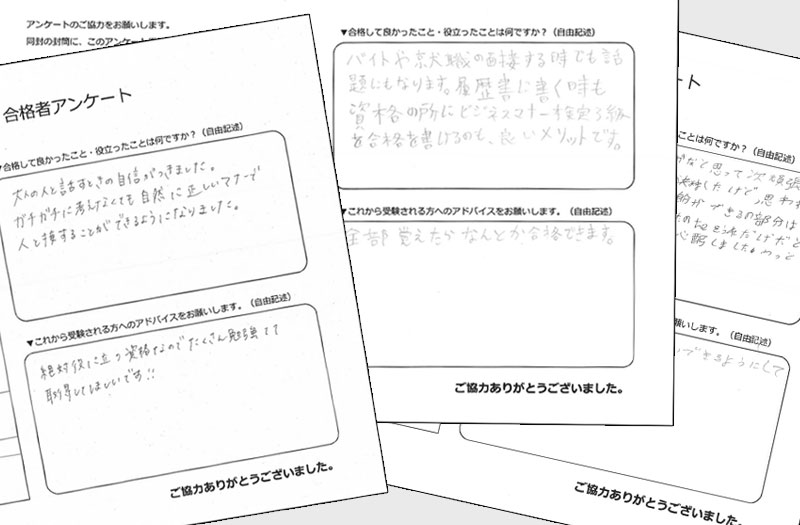 アンケートのご協力をお願いします。
同封の封筒に、このアンケート
合格者アンケート
▼合格して良かったこと・役立ったことは何ですか？（自由記述）
大人の人と話すときの自信がつきました。
ガチガチに考えなくても自然に正しいマナーで
人と接することができるようになりました。
▼これから受験される方へのアドバイスをお願いします。（自由記述）
絶対役に立つ資格なのでたくさん勉強して
取得してほしいです!!
ご協力ありがとうございました。
▼合格して良かったこと・役立ったことは何ですか？（自由記述）
バイトや就職の面接する時でも話
題にもなります。履歴書に書く時も
資格の所にビジネスマナー検定3級
を合格を書けるのも、良いメリットです。
▼これから受験される方へのアドバイスをお願いします。（自由記述）
全部覚えたらなんとか合格できます。
ご協力ありがとうございました。
ート
ことは何ですか？（自由記述）
かなと思って次頑張
したけど、思われ
ができるの部分は
しました。やっと
願いします。（自由記述）
できるようにして
ご協力ありがとうございました。